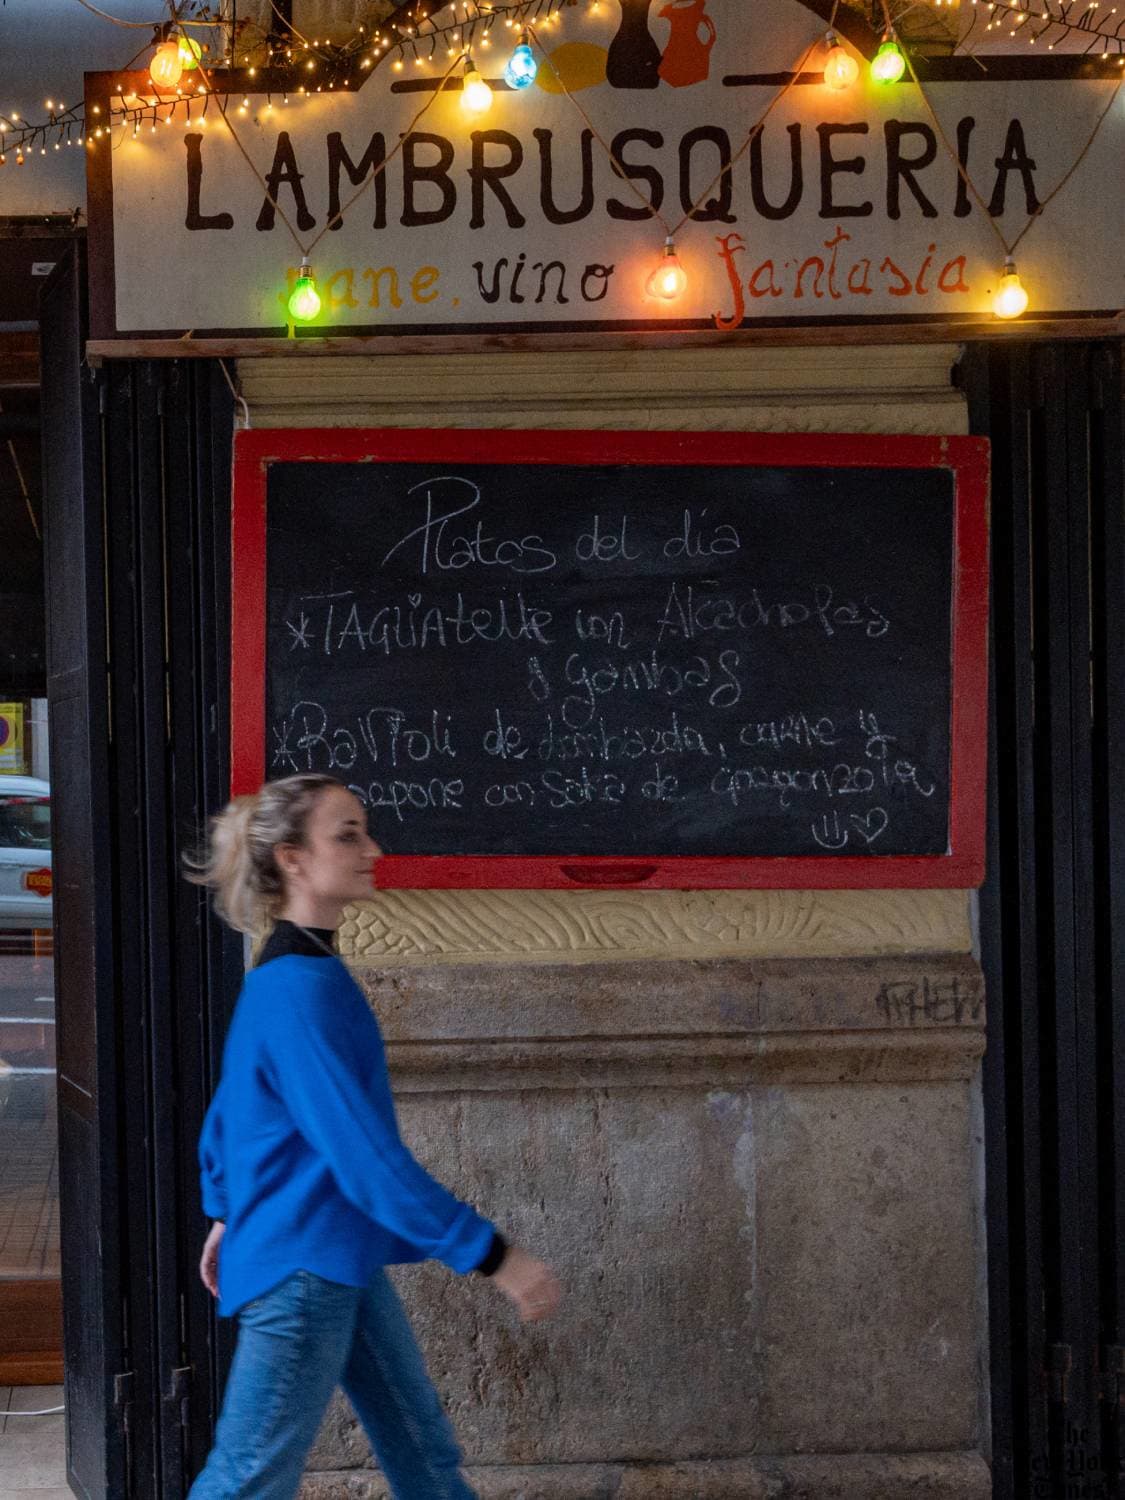 LAMBRUSQUERIA
pane, vino fantasia
Platos del día
*TAGLIAtelle con Alcachofas
y gambas
*RaVioli de lombarda, carne y
con salsa de gorgonzola
The
New York
Times